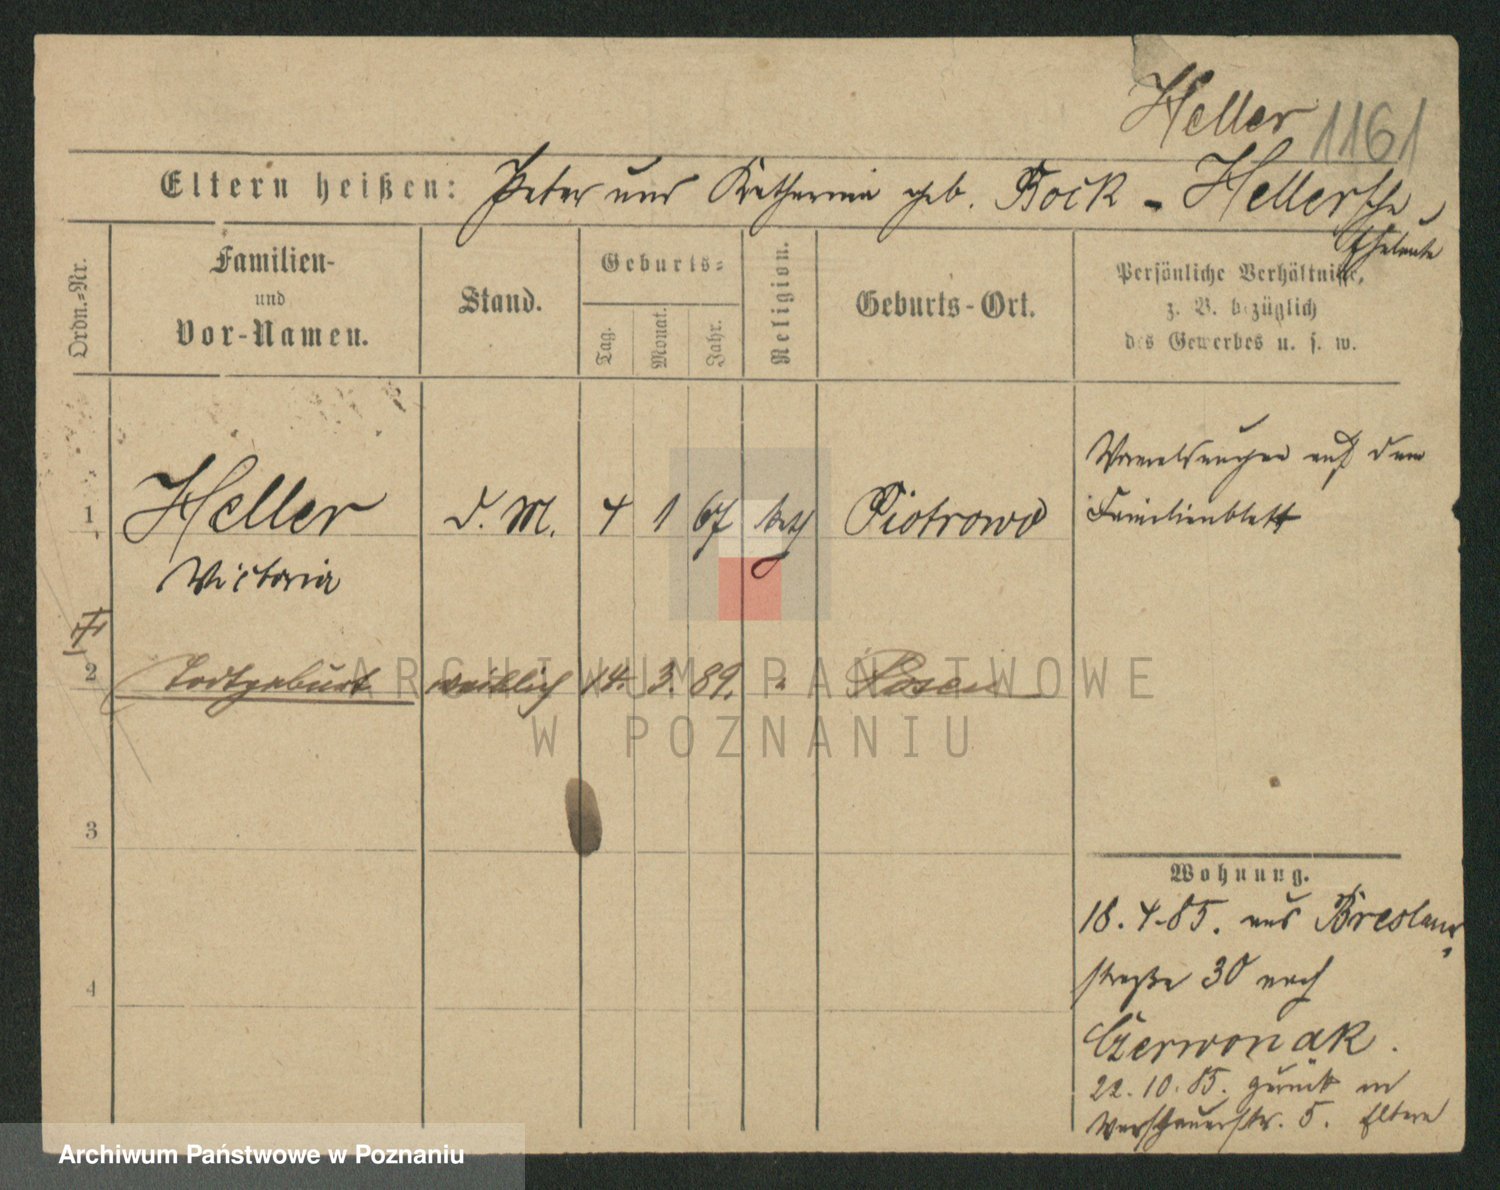 Heller 1161
Eltern heißen: Peter und Katharina geb. Bock - Hellersche
Eheleute
Ordn.-Nr.
Familien-
und
Vor-Namen.
Stand.
Geburts-
Tag.
Monat.
Jahr.
Religion.
Geburts-Ort.
Persönliche Verhältnisse,
z. B. bezüglich
des Gewerbes u. s. w.
1 Heller d. M. 4 1 67 kath Piotrowo
Victoria
auf dem
Familienblatt
2 Todtgeburt weiblich 14. 3. 89. " Posen
3
4
Wohnung.
18. 4. 85. aus Breslauer
straße 30 nach
Czerwonak.
22. 10. 85. zurück in
Warschauerstr. 5. Eltern
ARCHIWUM PAŃSTWOWE
W POZNANIU
Archiwum Państwowe w Poznaniu